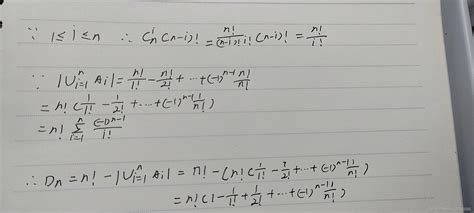 ∵ 1≤i≤n ∴ Cₙⁱ(n-i)! = n!/((n-i)!i!) (n-i)! = n!/i!
∵ |∪ᵢ₌₁ⁿ Ai| = n!/1! - n!/2! + ⋯ + (-1)ⁿ⁻¹ n!/n!
= n! (1/1! - 1/2! + ⋯ + (-1)ⁿ⁻¹ 1/n!)
= n! ∑ᵢ₌₁ⁿ (-1)ⁿ⁻¹/i!
∴ Dn = n! - |∪ᵢ₌₁ⁿ Ai| = n! - (n! (1/1! - 1/2! + ⋯ + (-1)ⁿ⁻¹ 1/n!)
= n! (1 - 1/1! + 1/2! + ⋯ + (-1)ⁿ⁻¹ 1/n!)